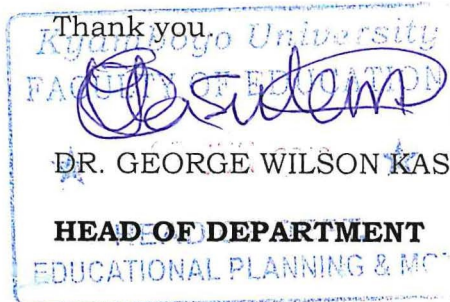 Thank you.
Kyambogo University
FACULTY OF EDUCATION
DR. GEORGE WILSON KAS
HEAD OF DEPARTMENT
EDUCATIONAL PLANNING &